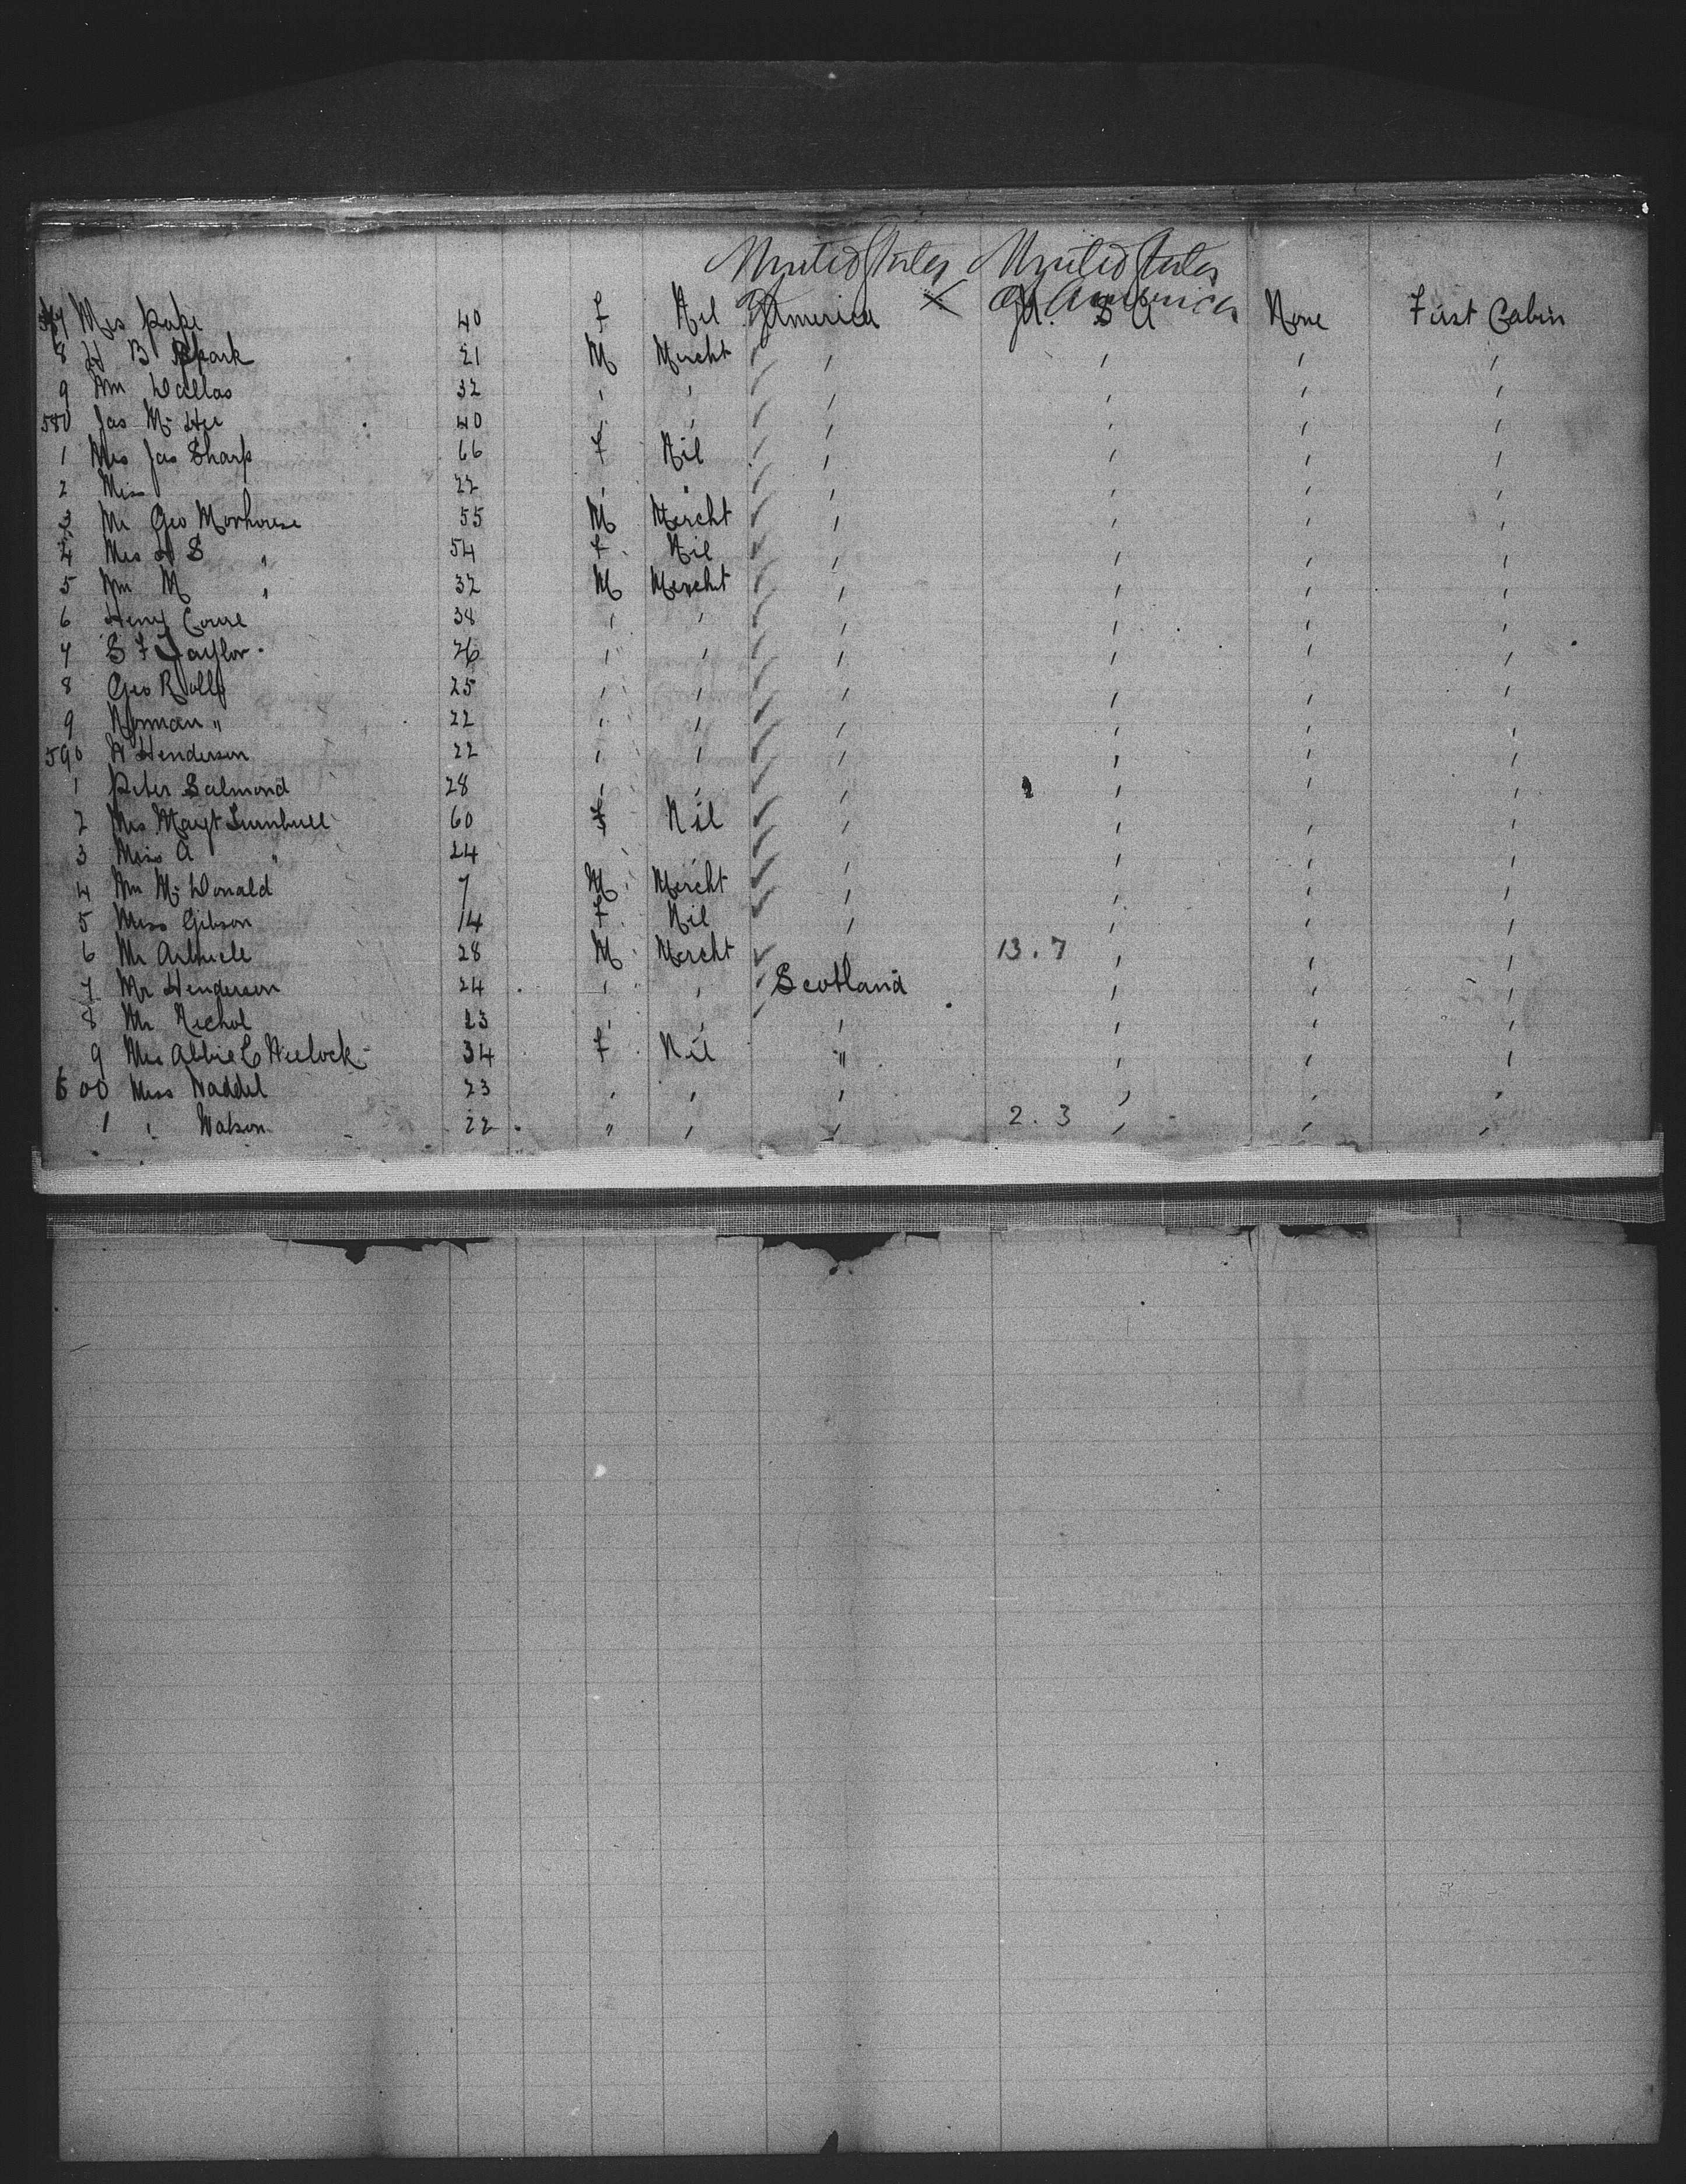 United States United States
577 Mrs Pape 40 F Nil of America X of America U. S A None First Cabin
8 H B Spark 21 M Mercht ✓ " " " "
9 Wm Dallas 32 " " ✓ " " " "
580 Jas Mc 40 " " ✓ " " " "
1 Mrs Jas Sharp 66 F Nil ✓ " " " "
2 Miss " 22 " " ✓ " " " "
3 Mr Geo Morhouse 55 M Mercht ✓ " " " "
4 Mrs S " 54 F Nil ✓ " " " "
5 Wm M " 32 M Mercht ✓ " " " "
6 Henry 38 " " ✓ " " " "
7 S F Taylor 26 " " ✓ " " " "
8 Geo Rollo 25 " " ✓ " " " "
9 Norman " 22 " " ✓ " " " "
590 W Henderson 22 " " ✓ " " " "
1 Peter Salmond 28 " " ✓ " " " "
2 Mrs Margt Turnbull 60 F Nil ✓ " " " "
3 Miss A " 24 " " ✓ " " " "
4 Wm Mc Donald 7 M Mercht ✓ " " " "
5 Miss Gibson 14 F Nil ✓ " " " "
6 Mr 28 M Mercht ✓ " 13.7 " " "
7 Mr Henderson 24 " " ✓ Scotland " " "
8 Mr Nichol 23 " " ✓ " " " "
9 Mrs Abbie C 34 F Nil " " " "
600 Miss Waddel 23 " " " " " "
1 " Watson 22 " " " 2.3 " " "